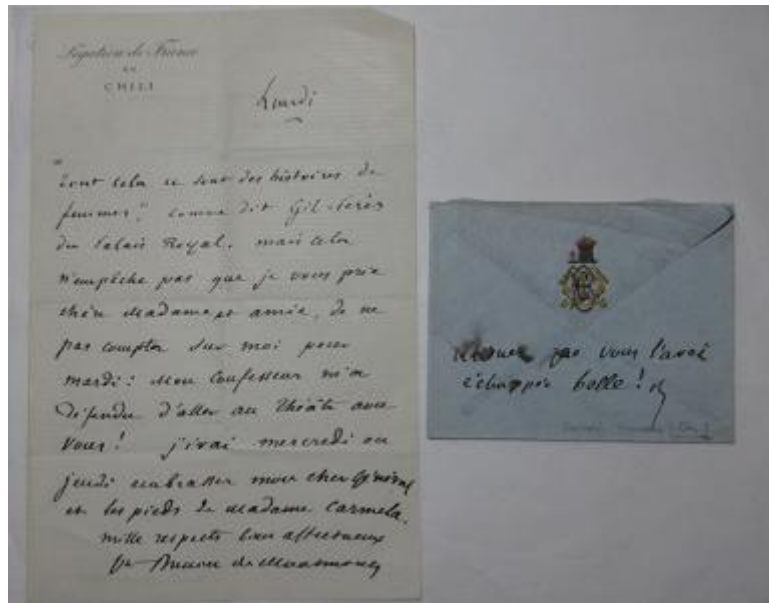 Légation de France
AU
CHILI
Lundi
"Tout cela ce sont des histoires de
femmes", comme dit Gil-Pérès
du Palais Royal. mais cela
n'empêche pas que je vous prie
chère Madame et amie, de ne
pas compter sur moi pour
mardi: Mon Confesseur m'a
défendu d'aller au théâtre avec
Vous! j'irai mercredi ou
jeudi embrasser mon cher Général
et les pieds de Madame Carmela.
mille respects bien affectueux
Avouez que vous l'avez
échappée belle!